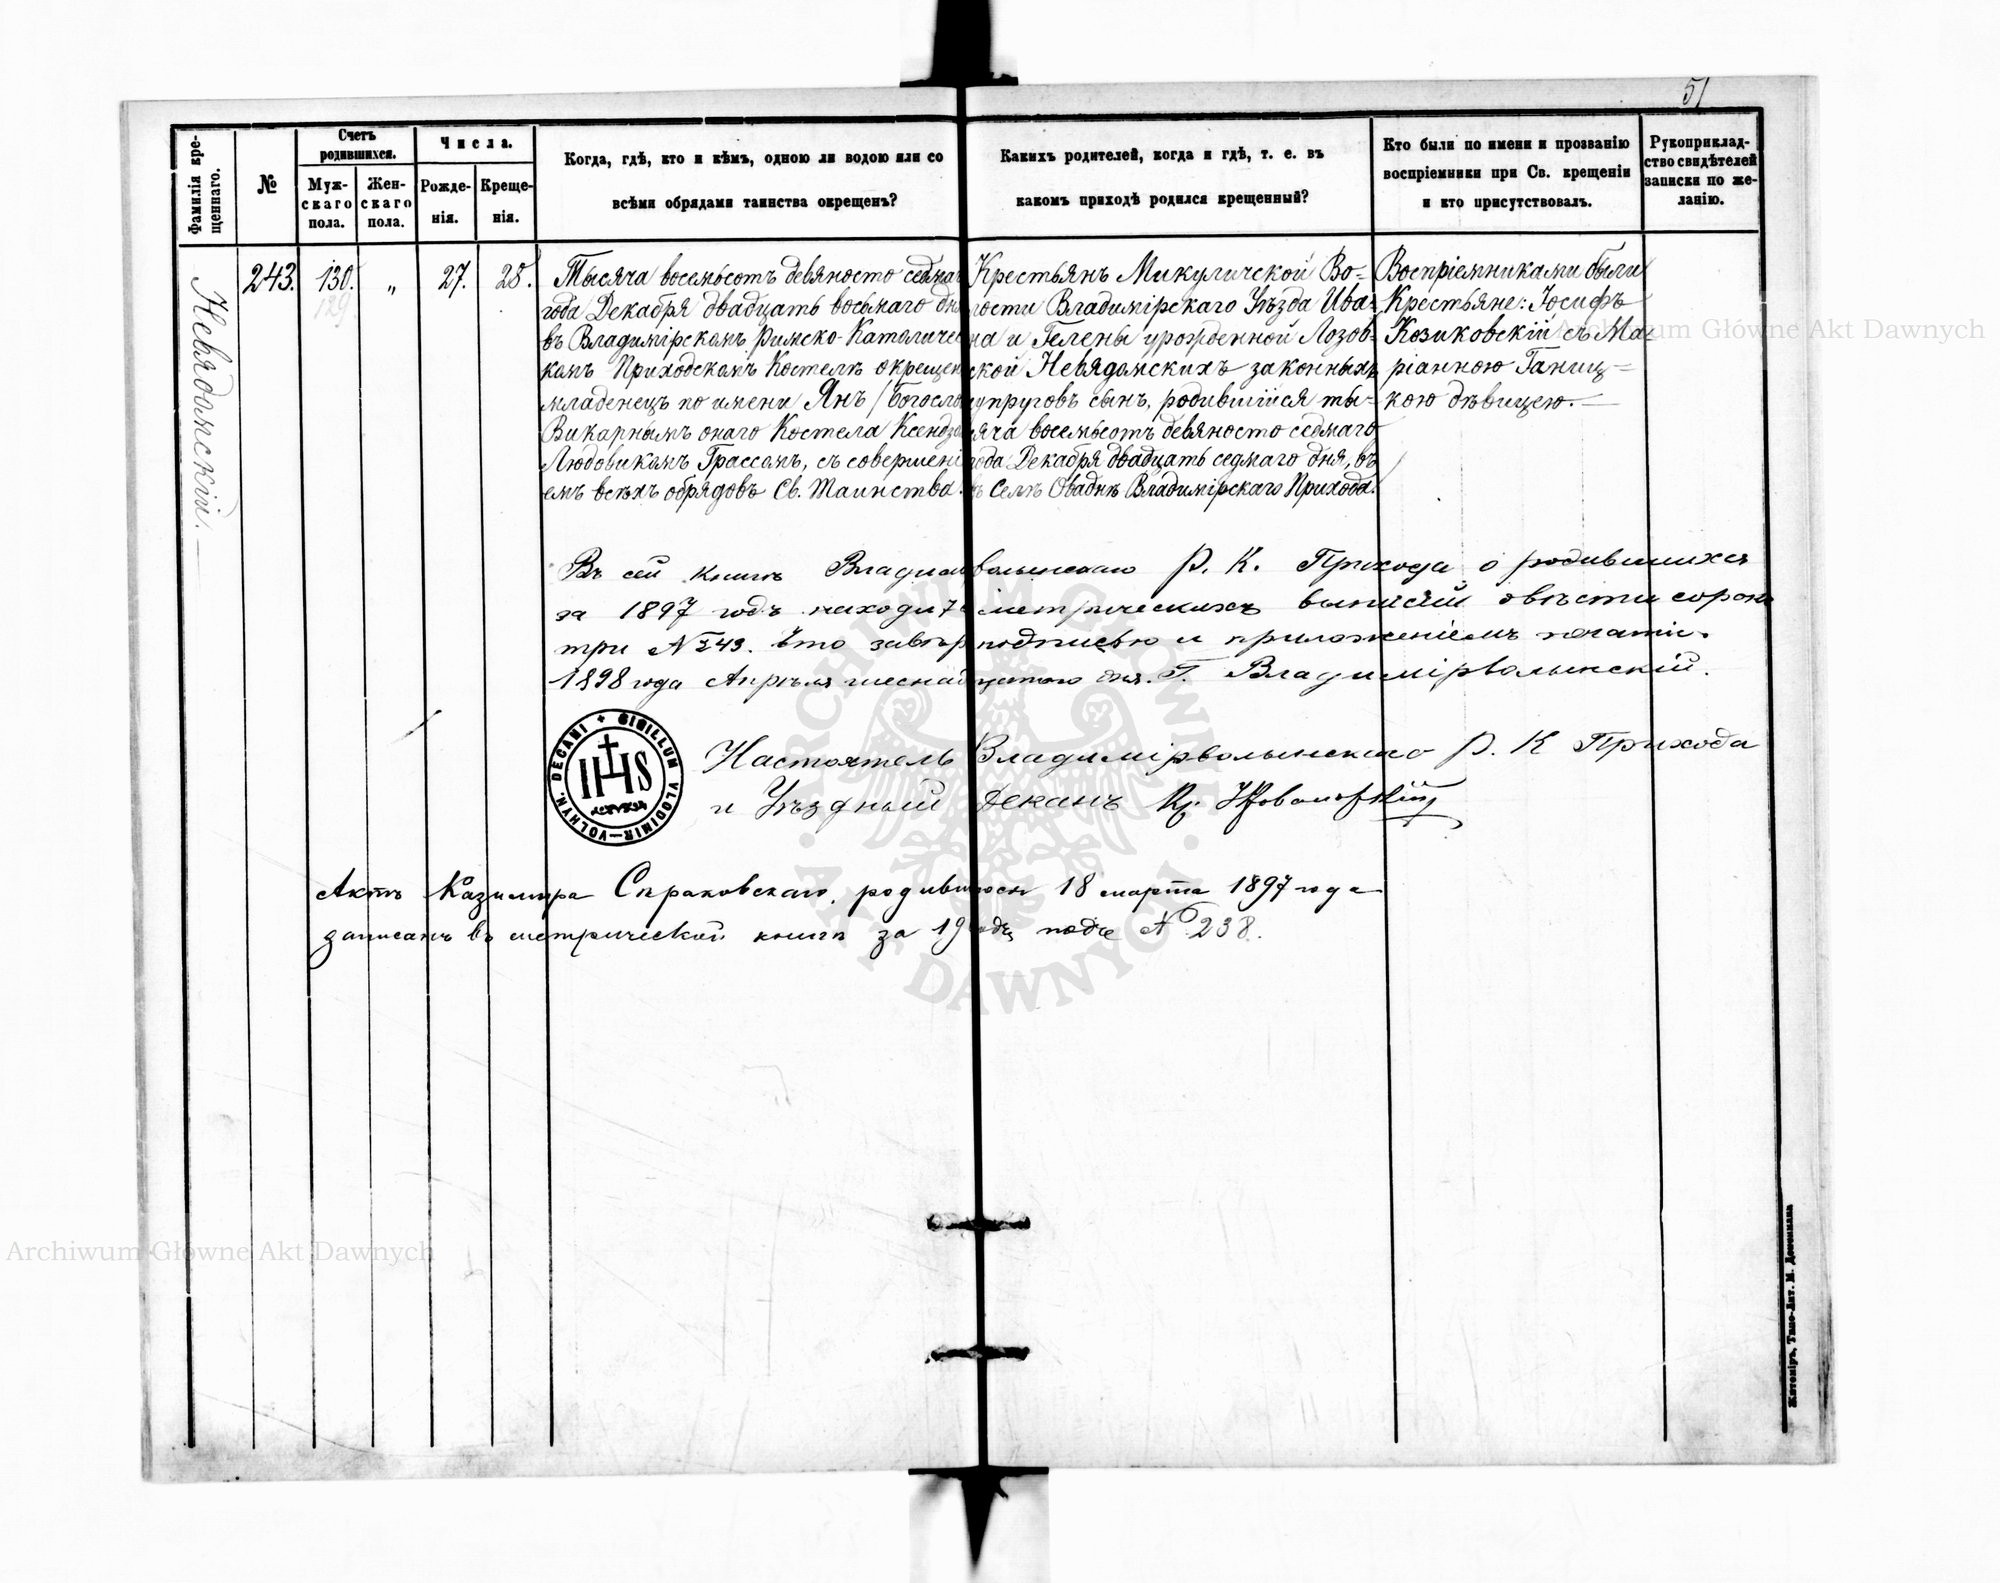 51
Фамилія кре-
щеннаго.
№
Счетъ
родившихся.
Муж-
скаго
пола.
Жен-
скаго
пола.
Числа.
Рожде-
нія.
Креще-
нія.
Когда, гдѣ, кто и кѣмъ, одною ли водою или со
всѣми обрядами таинства окрещенъ?
Какихъ родителей, когда и гдѣ, т. е. въ
какомъ приходѣ родился крещенный?
Кто были по имени и прозванію
воспріемники при Св. крещеніи
и кто присутствовалъ.
Рукоприклад-
ство свидѣтелей
записки по же-
ланію.
Невядомскій.
243.
130.
129
"
27.
28.
Тысяча восемьсотъ девяносто седмаг
года Декабря двадцать восьмаго дня
въ Владимірскомъ Римско-Католичес
комъ Приходскомъ Костелѣ окрещен
младенецъ по имени Янъ /Богосло
Викарнымъ онаго Костела Ксендзо
Людовикомъ Грассомъ, съ совершені
емъ всѣхъ обрядовъ Св. Таинства.
Крестьянъ Микуличской Во=
лости Владимірскаго Уѣзда Ива=
на и Гелены урожденной Лозов=
ской Невядомскихъ законныхъ
супруговъ сынъ, родившійся ты=
сяча восемьсотъ девяносто седмаго
года Декабря двадцать седмаго дня, въ
въ Селѣ Оваднѣ Владимірскаго Прихода.
Воспріемниками были
Крестьяне: Іосифъ
Козиковскій съ Ма=
ріанною Ганиц=
кою дѣвицею.
Въ сей книгѣ Владимволынскаго Р. К. Прихода о родившихся
за 1897 годъ находитс метрическихъ выписей двѣсти сорокъ
три № 243. Что завѣр подписью и приложеніемъ печати.
1898 года Апрѣля шеснадцатого дня. Г. Владимірволынскій.
SIGILLUM VLODIMIR-VOLHYN. DECANI
IHS
Настоятель Владимірволынскаго Р. К Прихода
и Уѣздный Деканъ Кс.
Актъ Казимира Спраковскаго, родившося 18 марта 1897 года
записанъ въ метрической книгѣ за 19 подъ № 238.
Житоміръ, Типо-Лит. М. Дененмана
Archiwum Główne Akt Dawnych
Archiwum Główne Akt Dawnych
ARCHIWUM GŁÓWNE AKT DAWNYCH